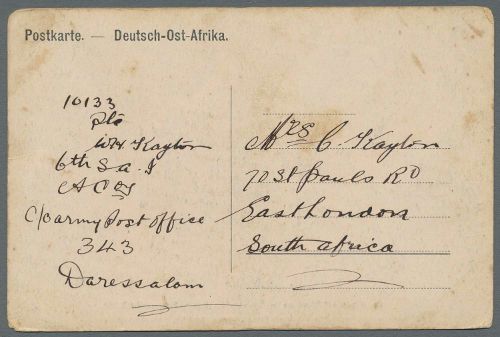 Postkarte. — Deutsch-Ost-Afrika.
10133
Pte
WH Kayton
6th S.A.I
A Coy
C/o army Post office
343
Daressalam
Mrs C. Kayton
70 St Pauls RD
East London
South africa